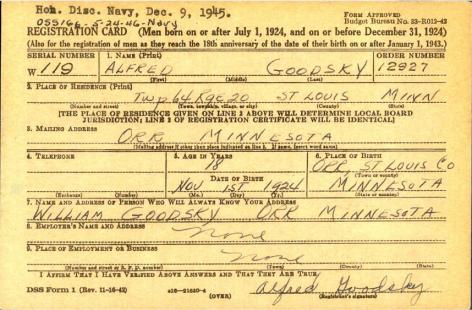 Hon. Disc. Navy, Dec. 9, 1945.
OSS166-5-24-46-Navy
FORM APPROVED
Budget Bureau No. 33-R012-42
REGISTRATION CARD (Men born on or after July 1, 1924, and on or before December 31, 1924)
(Also for the registration of men as they reach the 18th anniversary of the date of their birth on or after January 1, 1943.)
SERIAL NUMBER 1. NAME (Print) ORDER NUMBER
W 119 ALFRED GOODSKY 12927
(First) (Middle) (Last)
2. PLACE OF RESIDENCE (Print)
Twp 64 Rge 20 ST LOUIS MINN
(Number and street) (Town, township, village, or city) (County) (State)
[THE PLACE OF RESIDENCE GIVEN ON LINE 2 ABOVE WILL DETERMINE LOCAL BOARD
JURISDICTION; LINE 2 OF REGISTRATION CERTIFICATE WILL BE IDENTICAL]
3. MAILING ADDRESS
ORR MINNESOTA
[Mailing address if other than place indicated on line 2. If same, insert word same]
4. TELEPHONE 5. AGE IN YEARS 6. PLACE OF BIRTH
18 ORR, ST LOUIS CO
DATE OF BIRTH (Town or county)
NOV 1ST 1924 MINNESOTA
(Exchange) (Number) (Mo.) (Day) (Yr.) (State or country)
7. NAME AND ADDRESS OF PERSON WHO WILL ALWAYS KNOW YOUR ADDRESS
WILLIAM GOODSKY ORR MINNESOTA
8. EMPLOYER'S NAME AND ADDRESS
none
9. PLACE OF EMPLOYMENT OR BUSINESS
none
(Number and street or R. F. D. number) (Town) (County) (State)
I AFFIRM THAT I HAVE VERIFIED ABOVE ANSWERS AND THAT THEY ARE TRUE.
DSS Form 1 (Rev. 11-16-42) (OVER) Alfred Goodsky
(Registrant's signature)